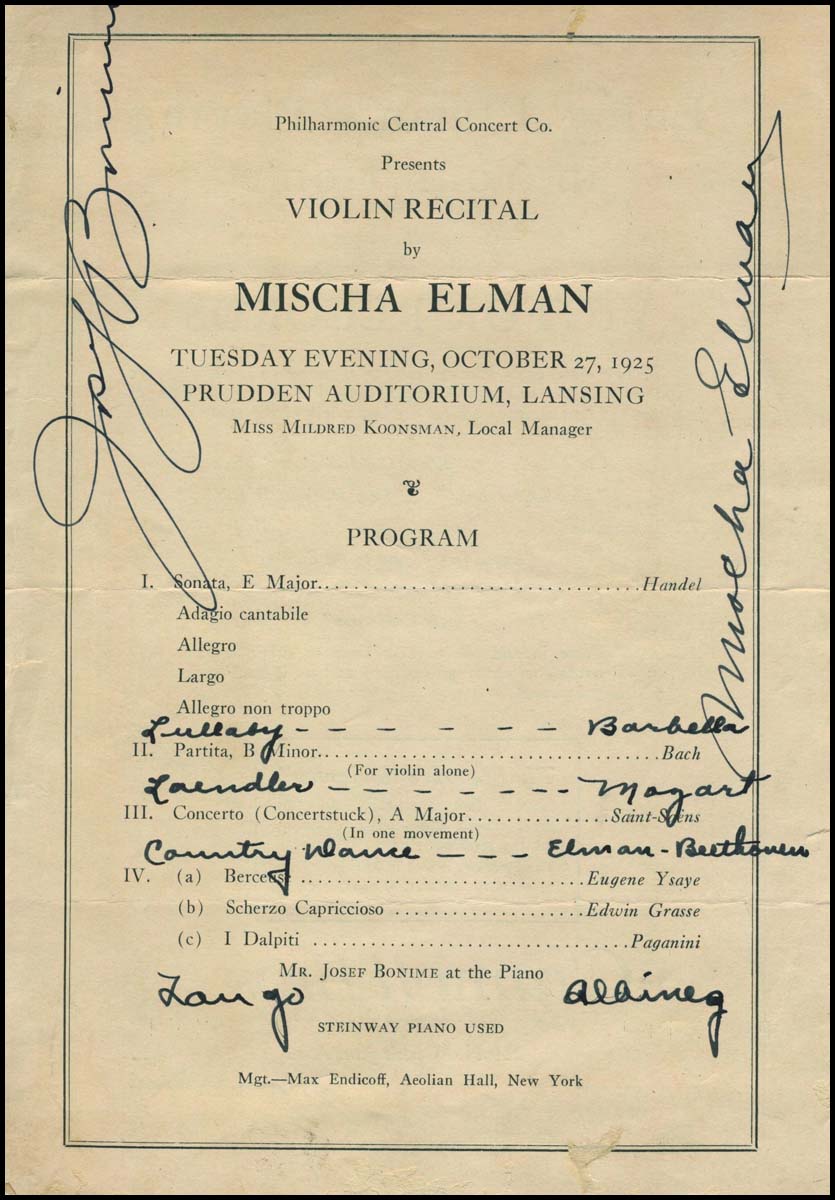 Philharmonic Central Concert Co.
Presents
VIOLIN RECITAL
by
MISCHA ELMAN
TUESDAY EVENING, OCTOBER 27, 1925
PRUDDEN AUDITORIUM, LANSING
MISS MILDRED KOONSMAN, Local Manager
PROGRAM
I. Sonata, E Major................................Handel
Adagio cantabile
Allegro
Largo
Allegro non troppo
Lullaby - - - - - - Barbella
II. Partita, B Minor..................................Bach
(For violin alone)
Laendler - - - - - - - Mozart
III. Concerto (Concertstuck), A Major...............Saint-Saens
(In one movement)
Country Dance - - - Elman-Beethoven
IV. (a) Berceuse.............................Eugene Ysaye
(b) Scherzo Capriccioso....................Edwin Grasse
(c) I Dalpiti................................Paganini
MR. JOSEF BONIME at the Piano
Tango Albineg
STEINWAY PIANO USED
Mgt.—Max Endicoff, Aeolian Hall, New York
Josef Bonime
Mischa Elman